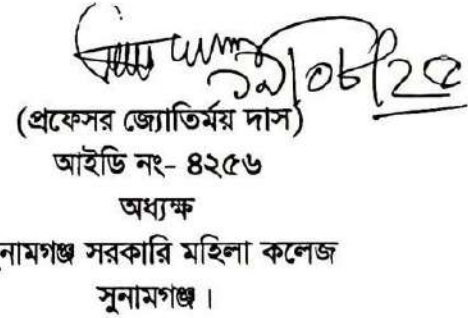 ১৯/০৮/২৫
(প্রফেসর জ্যোতির্ময় দাস)
আইডি নং- ৪২৫৬
অধ্যক্ষ
নামগঞ্জ সরকারি মহিলা কলেজ
সুনামগঞ্জ।